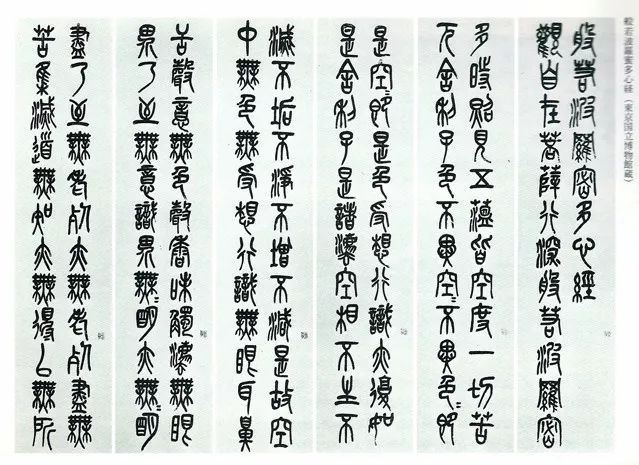 般若波羅蜜多心経（東京国立博物館蔵）
般若波羅密多心經
觀自在菩薩行深般若波羅密
多時照見五蘊皆空度一切苦
厄舍利子色不異空〻不異色〻即
是空〻即是色受想行識亦復如
是舍利子是諸灋空相不生不
滅不垢不淨不增不減是故空
中無色無受想行識無眼耳鼻
舌聲意無色聲香味觸灋無眼
界乃至無意識界無〻明亦無〻明
盡乃至無老死亦無老死盡無
苦集滅道無知亦無得以無所